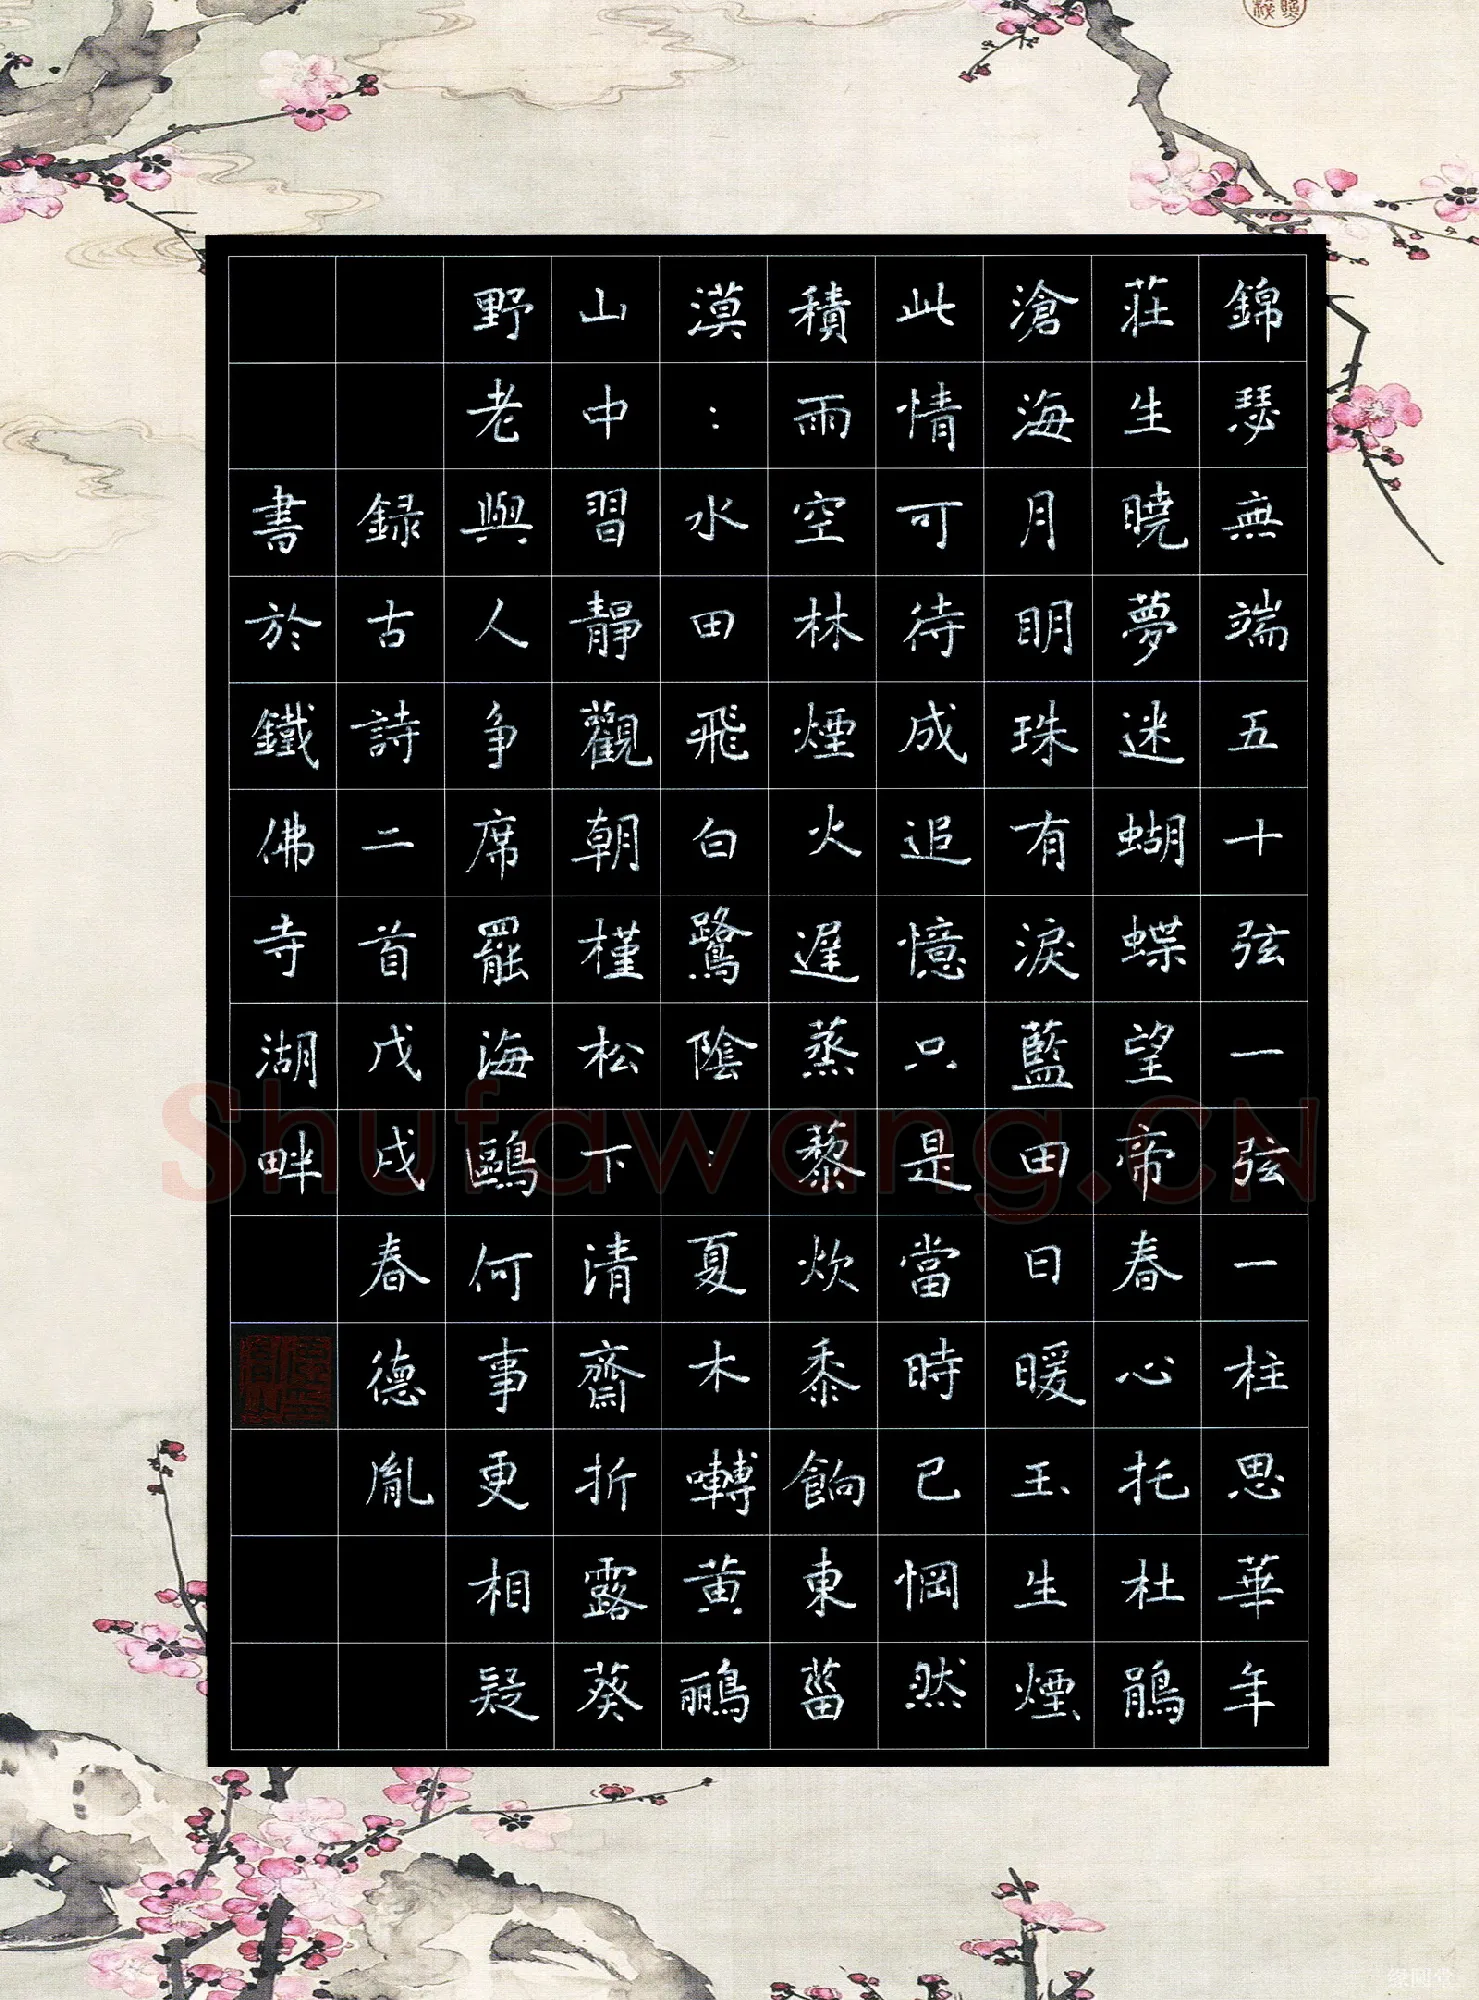 錦瑟無端五十弦一弦一柱思華年
莊生曉夢迷蝴蝶望帝春心托杜鵑
滄海月明珠有淚藍田日暖玉生煙
此情可待成追憶只是當時已惘然
積雨空林煙火遲蒸藜炊黍餉東菑
漠:水田飛白鷺陰:夏木囀黄鸝
山中習靜觀朝槿松下清齋折露葵
野老與人争席罷海鷗何事更相疑
録古詩二首戊戌春德胤
書於鐵佛寺湖畔
Shufawang.CN